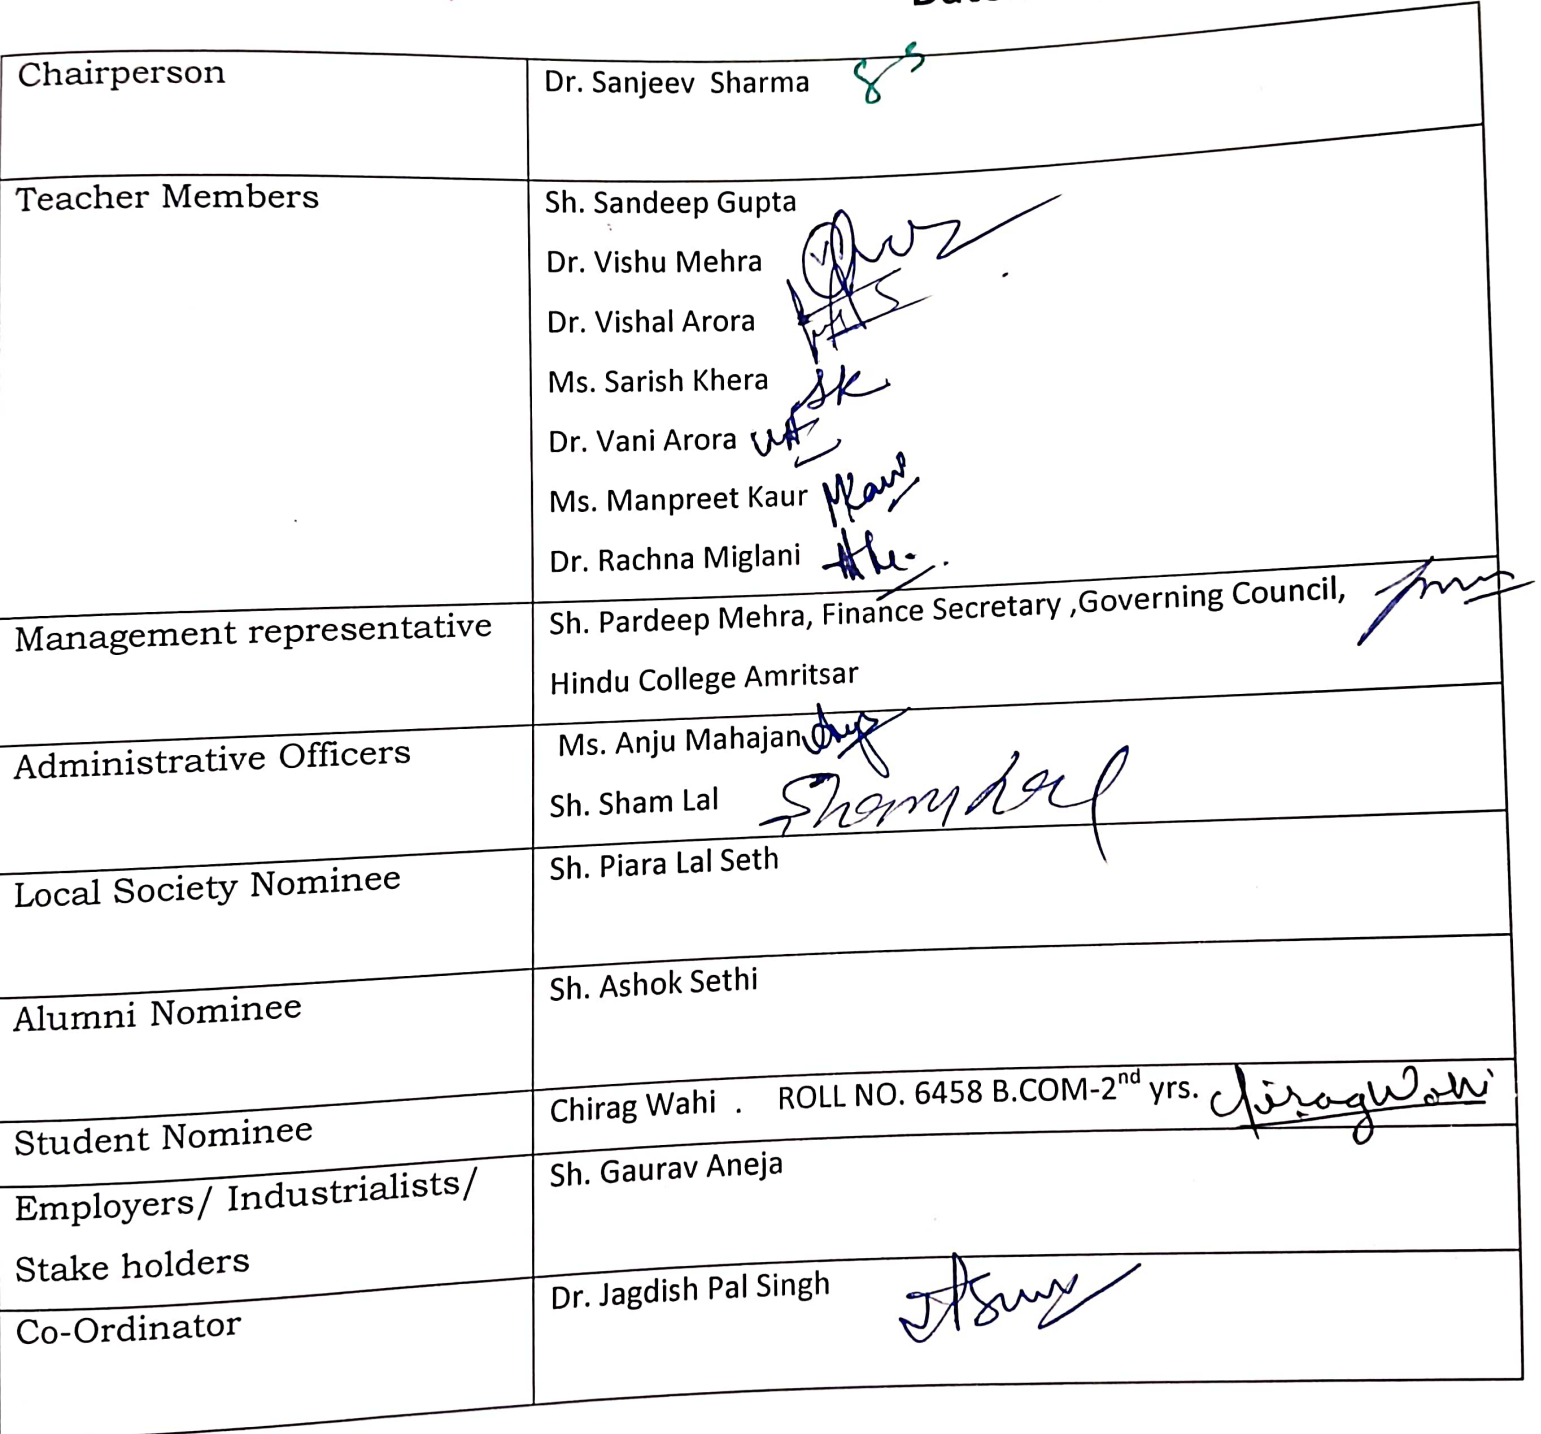 Chairperson
Dr. Sanjeev Sharma
Teacher Members
Sh. Sandeep Gupta
Dr. Vishu Mehra
Dr. Vishal Arora
Ms. Sarish Khera SK
Dr. Vani Arora
Ms. Manpreet Kaur MKaur
Dr. Rachna Miglani
Management representative
Sh. Pardeep Mehra, Finance Secretary ,Governing Council,
Hindu College Amritsar
Administrative Officers
Ms. Anju Mahajan
Sh. Sham Lal Sham Lal
Local Society Nominee
Sh. Piara Lal Seth
Alumni Nominee
Sh. Ashok Sethi
Student Nominee
Chirag Wahi . ROLL NO. 6458 B.COM-2nd yrs. Chirag Wahi
Employers/ Industrialists/
Stake holders
Sh. Gaurav Aneja
Co-Ordinator
Dr. Jagdish Pal Singh